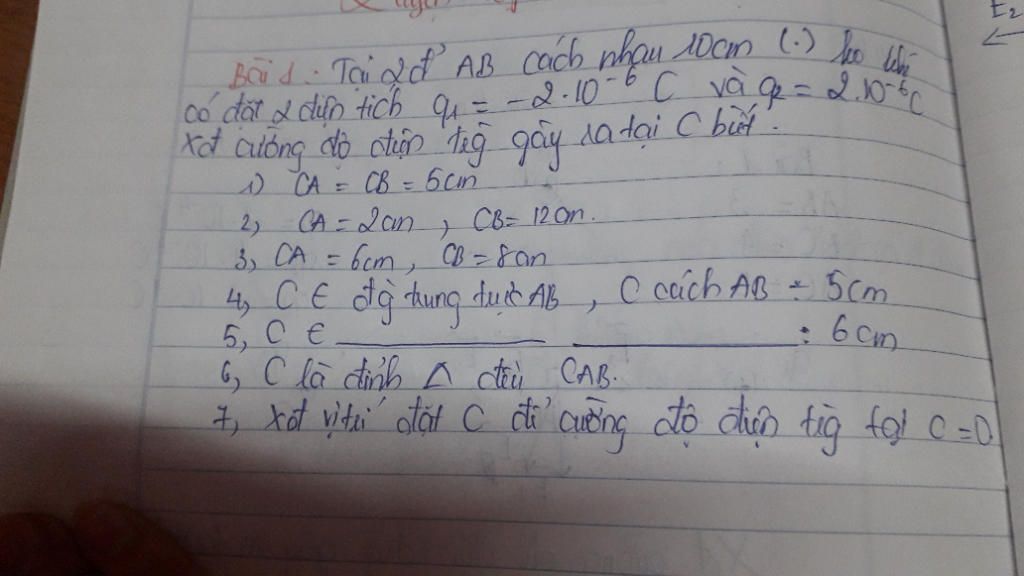 Bài 1: Tại 2 đ' AB cách nhau 10cm (.) ko khí
có đặt 2 điện tích q₁ = -2.10⁻⁶ C và q₂ = 2.10⁻⁶C
xđ cường độ điện trg gây ra tại C biết.
1) CA = CB = 5cm
2, CA = 2cm, CB = 12cm.
3, CA = 6cm, CB = 8cm
4, C ∈ đg trung trực AB, C cách AB = 5cm
5, C ∈ ________ ________ : 6cm
6, C là đỉnh Δ đều CAB.
7, xđ vị trí đặt C để cường độ điện trg tại C = 0
E₂